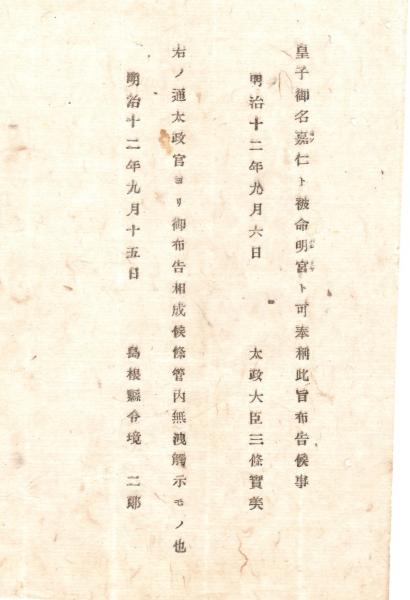 皇子御名嘉仁ト被命明宮ト可奉稱此旨布告候事
明治十二年九月六日　太政大臣三條實美
右ノ通太政官ヨリ御布告相成候條管内無洩觸示モノ也
明治十二年九月十五日　島根縣令境二郎